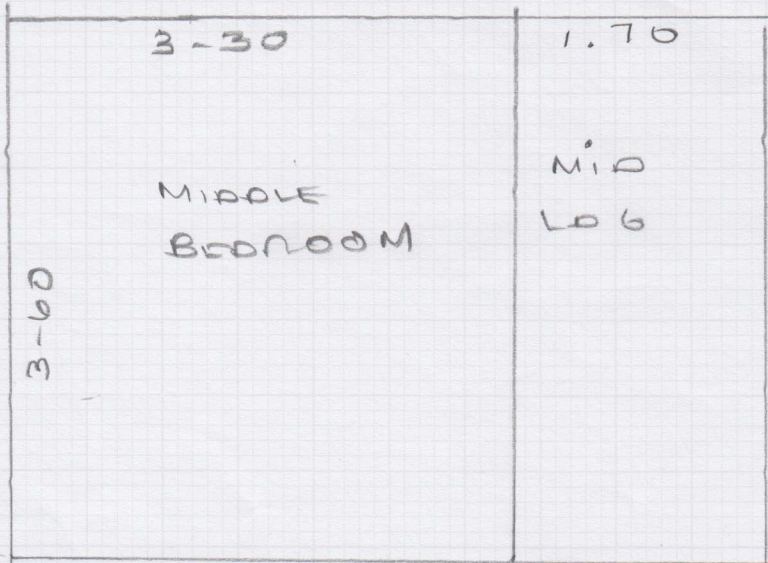 3-30
1.70
MIDDLE
BEDROOM
MID
LDG
3-60